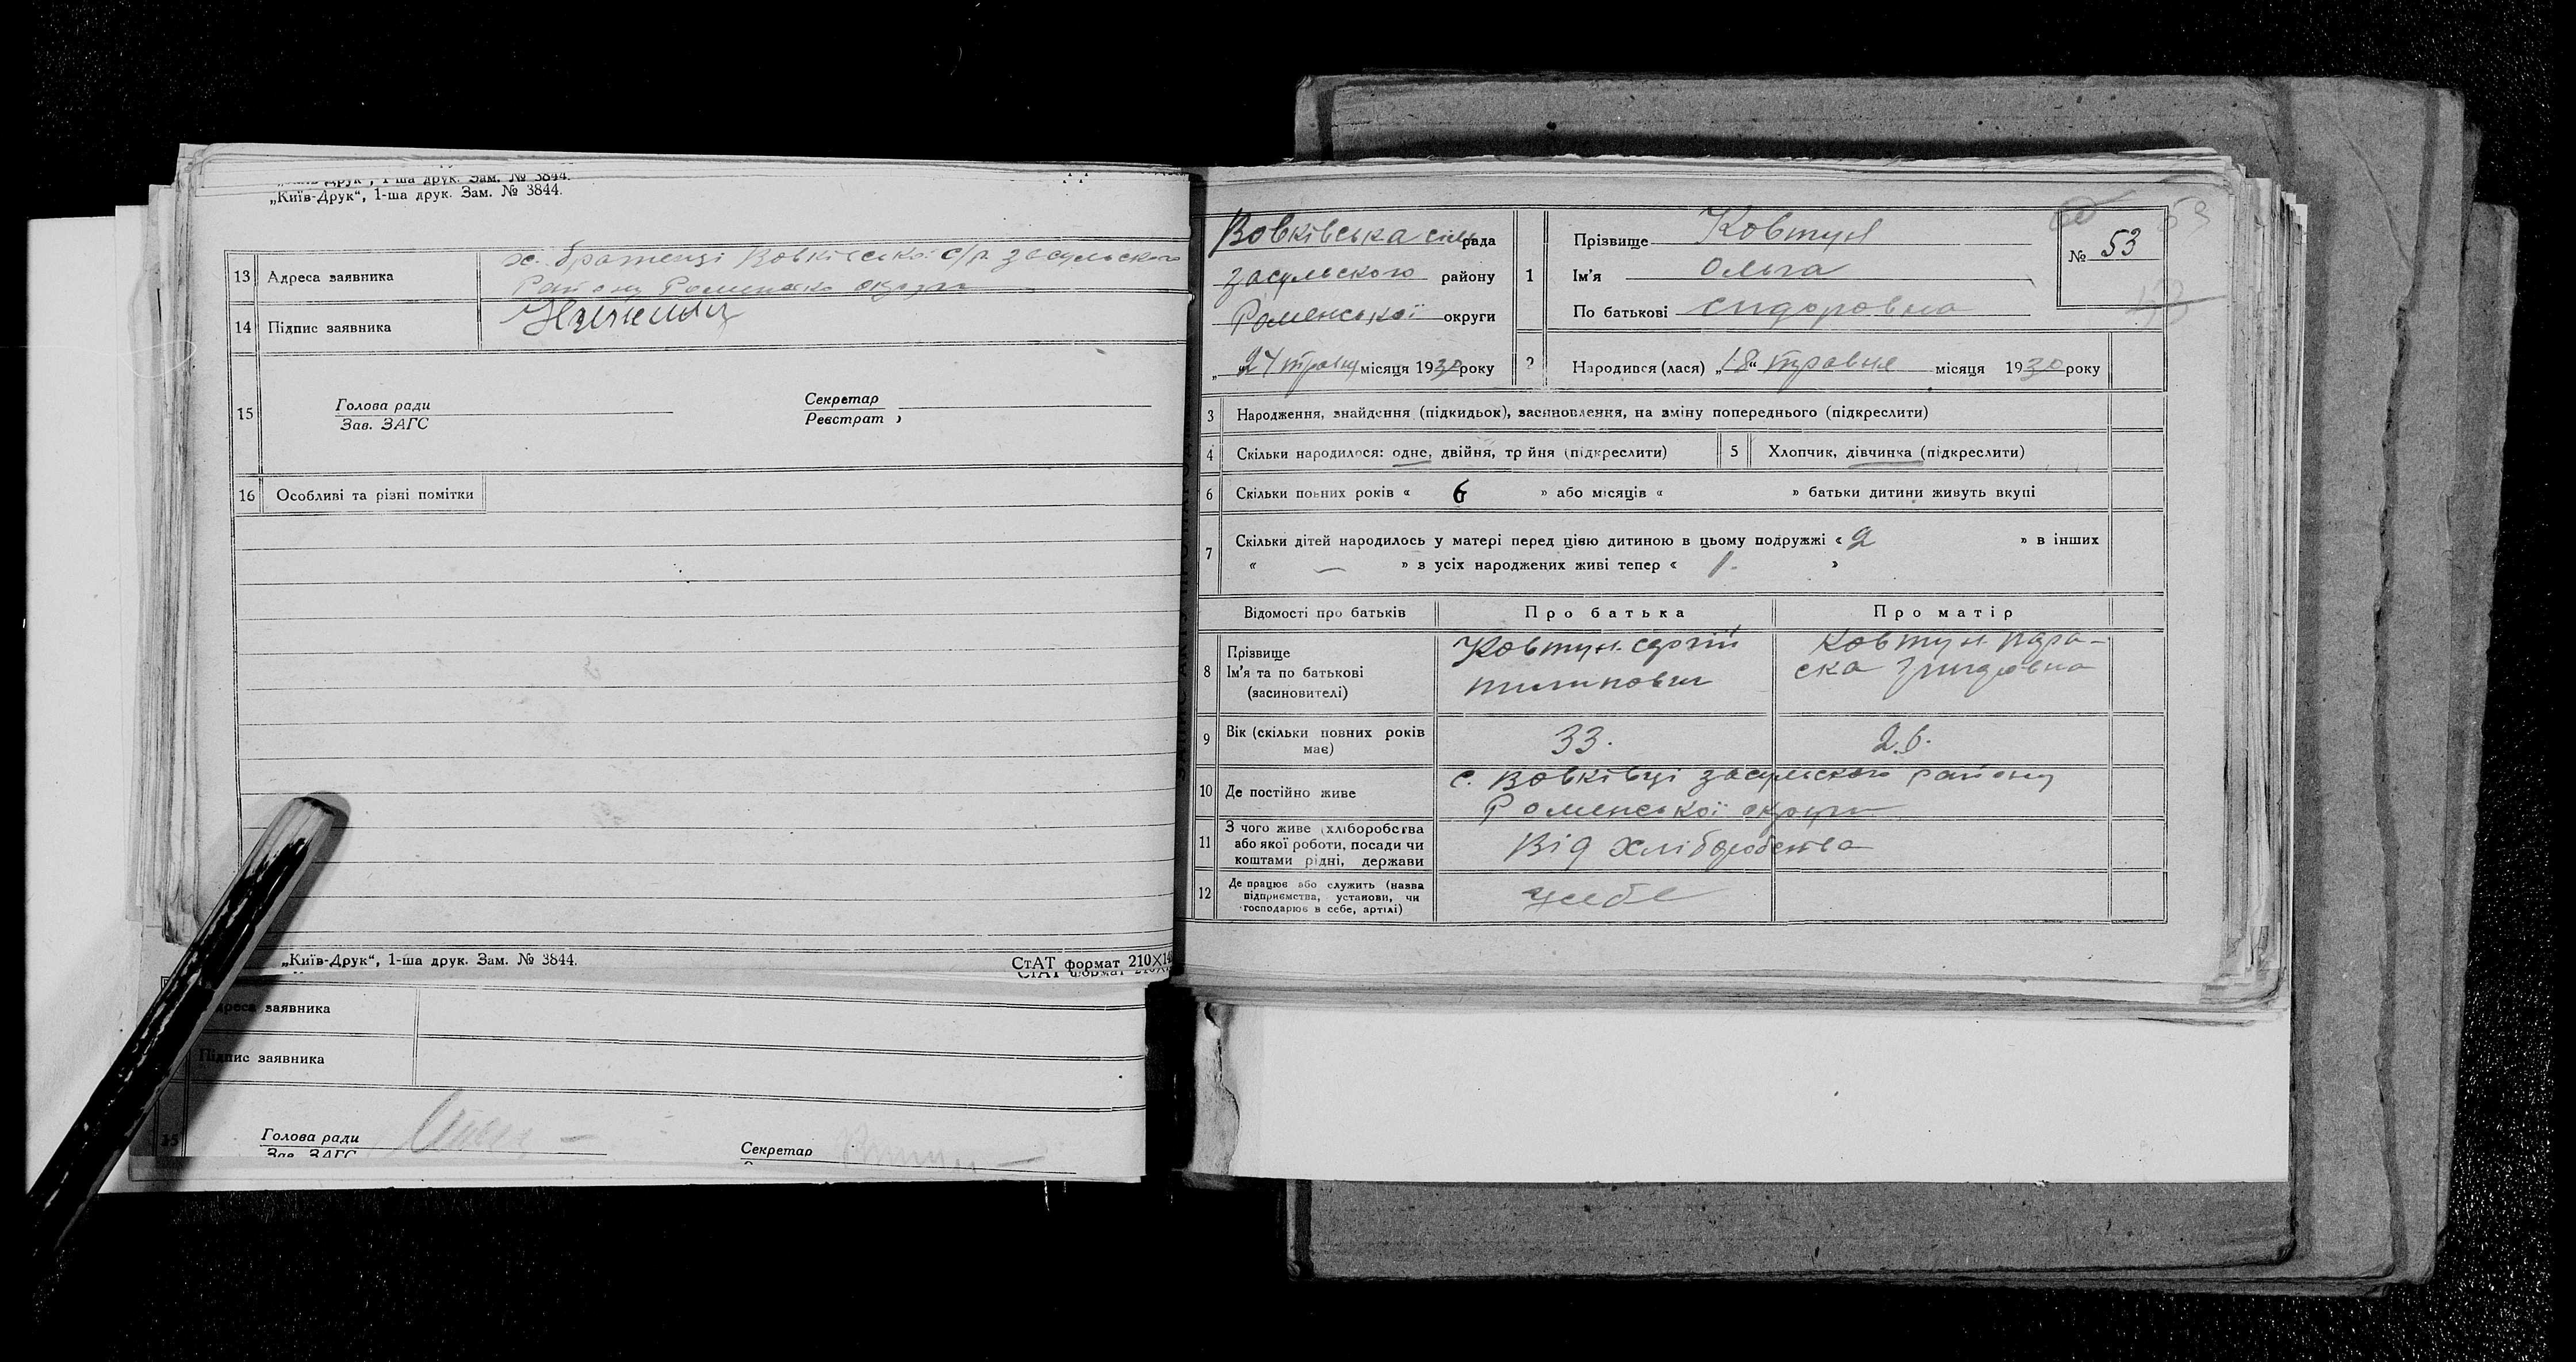 „Київ-Друк“, 1-ша друк. Зам. № 3844.
„Київ-Друк“, 1-ша друк. Зам. № 3844.
13 Адреса заявника х. братенці Вовківської с/р засульського
Району Роменсько округи
14 Підпис заявника
15 Голова ради
Зав. ЗАГС
Секретар
Реєстрат
16 Особливі та різні помітки
„Київ-Друк“, 1-ша друк. Зам. № 3844.
СтАТ формат 210×14
Адреса заявника
Підпис заявника
15
Голова ради
Зав. ЗАГС
Секретар
Вовківська сільрада
засульського району
Роменської округи
„24 травня місяця 1930 року
1 Прізвище Ковтун
Ім'я Ольга
По батькові сидоровна
№ 53
53
2 Народився (лася) „18“ травня місяця 1930 року
3 Народження, знайдення (підкидьок), засиновлення, на зміну попереднього (підкреслити)
4 Скільки народилося: одне, двійня, трійня (підкреслити)
5 Хлопчик, дівчинка (підкреслити)
6 Скільки повних років « 6 » або місяців « » батьки дитини живуть вкупі
7 Скільки дітей народилось у матері перед цією дитиною в цьому подружжі « 2 » в інших
« — » в усіх народжених живі тепер « 1. »
Відомості про батьків
Про батька
Про матір
8 Прізвище
Ім'я та по батькові
(засиновителі)
Ковтун
пилипович
Ковтун пара-
ска григоровна
9 Вік (скільки повних років
має)
33.
26.
10 Де постійно живе
с. Вовківці засульского району
Роменської округи
11 З чого живе (хліборобства
або якої роботи, посади чи
коштами рідні, держави
Від хліборобства
12 Де працює або служить (назва
підприємства, установи, чи
господарює в себе, артілі)
усебе